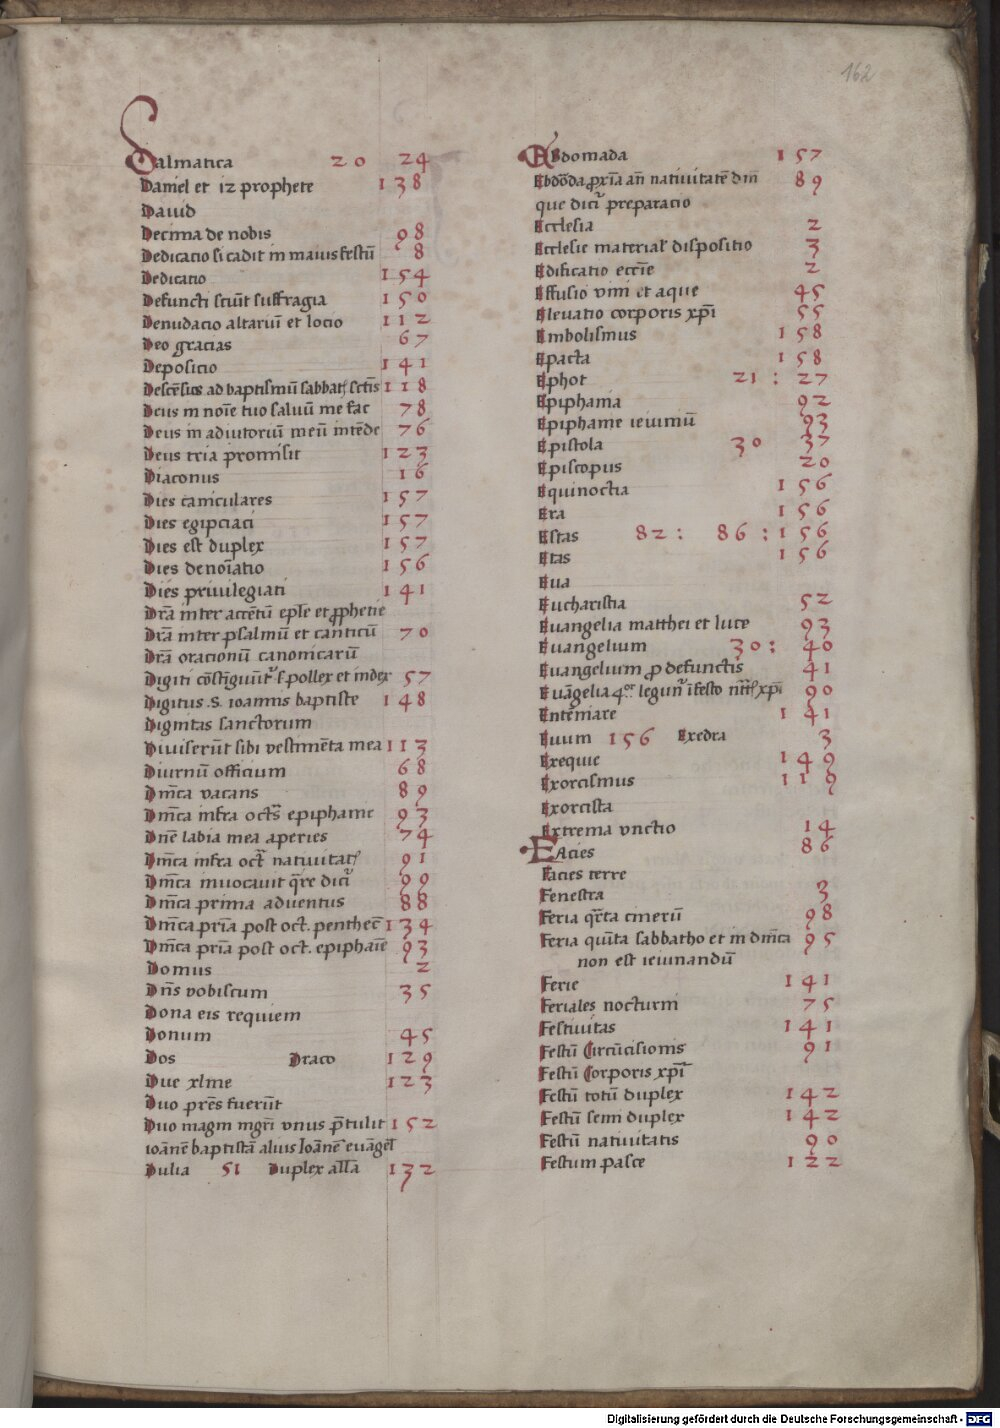 162
Dalmatica 20 24
Daniel et 12 prophete 138
Dauid
Decima de nobis 98
Dedicacio si cadit in maius festū 8
Dedicatio 154
Defuncti sciūt suffragia 150
Denudacio altariū et locio 112
Deo gracias 67
Depositio 141
Descēsus ad baptismū sabbat sctīs 118
Deus in noīe tuo saluū me fac 78
Deus in adiutoriū meū intēde 76
Deus tria promisit 123
Diaconus 16
Dies caniculares 157
Dies egipciaci 157
Dies est duplex 157
Dies denoīatio 156
Dies priuilegiati 141
Drā inter accētū epłe et prophetie
Drā inter psalmū et canticū 70
Drā oracionū canonicarū
Digiti cōstīguūt s pollex et index 57
Digitus .S. ioannis baptiste 148
Dignitas sanctorum
Diuiserūt sibi vestimēta mea 113
Diurnū officium 68
Dmīca vacans 89
Dmīca infra octs epiphanie 93
Dnē labia mea aperies 74
Dmīca infra oct natiuitat 91
Dmīca inuocauit qre dict 99
Dmīca prima aduentus 88
Dmīca prīa post oct. penthec 134
Dmīca prīa post oct. epiphaīe 93
Domus 2
Dn̄s vobiscum 35
Dona eis requiem
Donum 45
Dos Draco 129
Due xlme 123
Duo prēs fuerūt
Duo magni mgrī vnus ptulit 152
ioānē baptistā alius Ioānē euāgel
Dulia 51 Duplex allā 132
EBdomada 157
Ebdōda proxīa an natiuitatē dnī 89
que dicit preparacio
Ecclesia 2
Ecclesie material dispositio 3
Edificatio eccīe 2
Effusio vini et aque 45
Eleuatio corporis xpī 55
Embolismus 158
Epacta 158
Ephot 21 : 27
Epiphania 92
Epiphanie ieiuniū 93
Epistola 30 37
Episcopus 20
Equinoctia 156
Era 156
Estas 82 : 86 : 156
Etas 156
Eua
Eucharistia 52
Euangelia matthei et luce 93
Euangelium 30 : 40
Euangelium p defunctis 41
Euāgelia 4or legunt ī festo xpī 90
Entēniare 141
Euum 156 Exedra 3
Exequie 149
Exorcismus 119
Exorcista
Extrema vnctio 14
FAcies 86
Facies terre
Fenestra 3
Feria qrta cinerū 98
Feria quīta sabbatho et in dmīca 95
non est ieiunandū
Ferie 141
Feriales nocturni 75
Festiuitas 141
Festū Circūcisionis 91
Festū Corporis xpī
Festū totū duplex 142
Festū semi duplex 142
Festū natiuitatis 90
Festum pasce 122
Digitalisierung gefördert durch die Deutsche Forschungsgemeinschaft - DFG